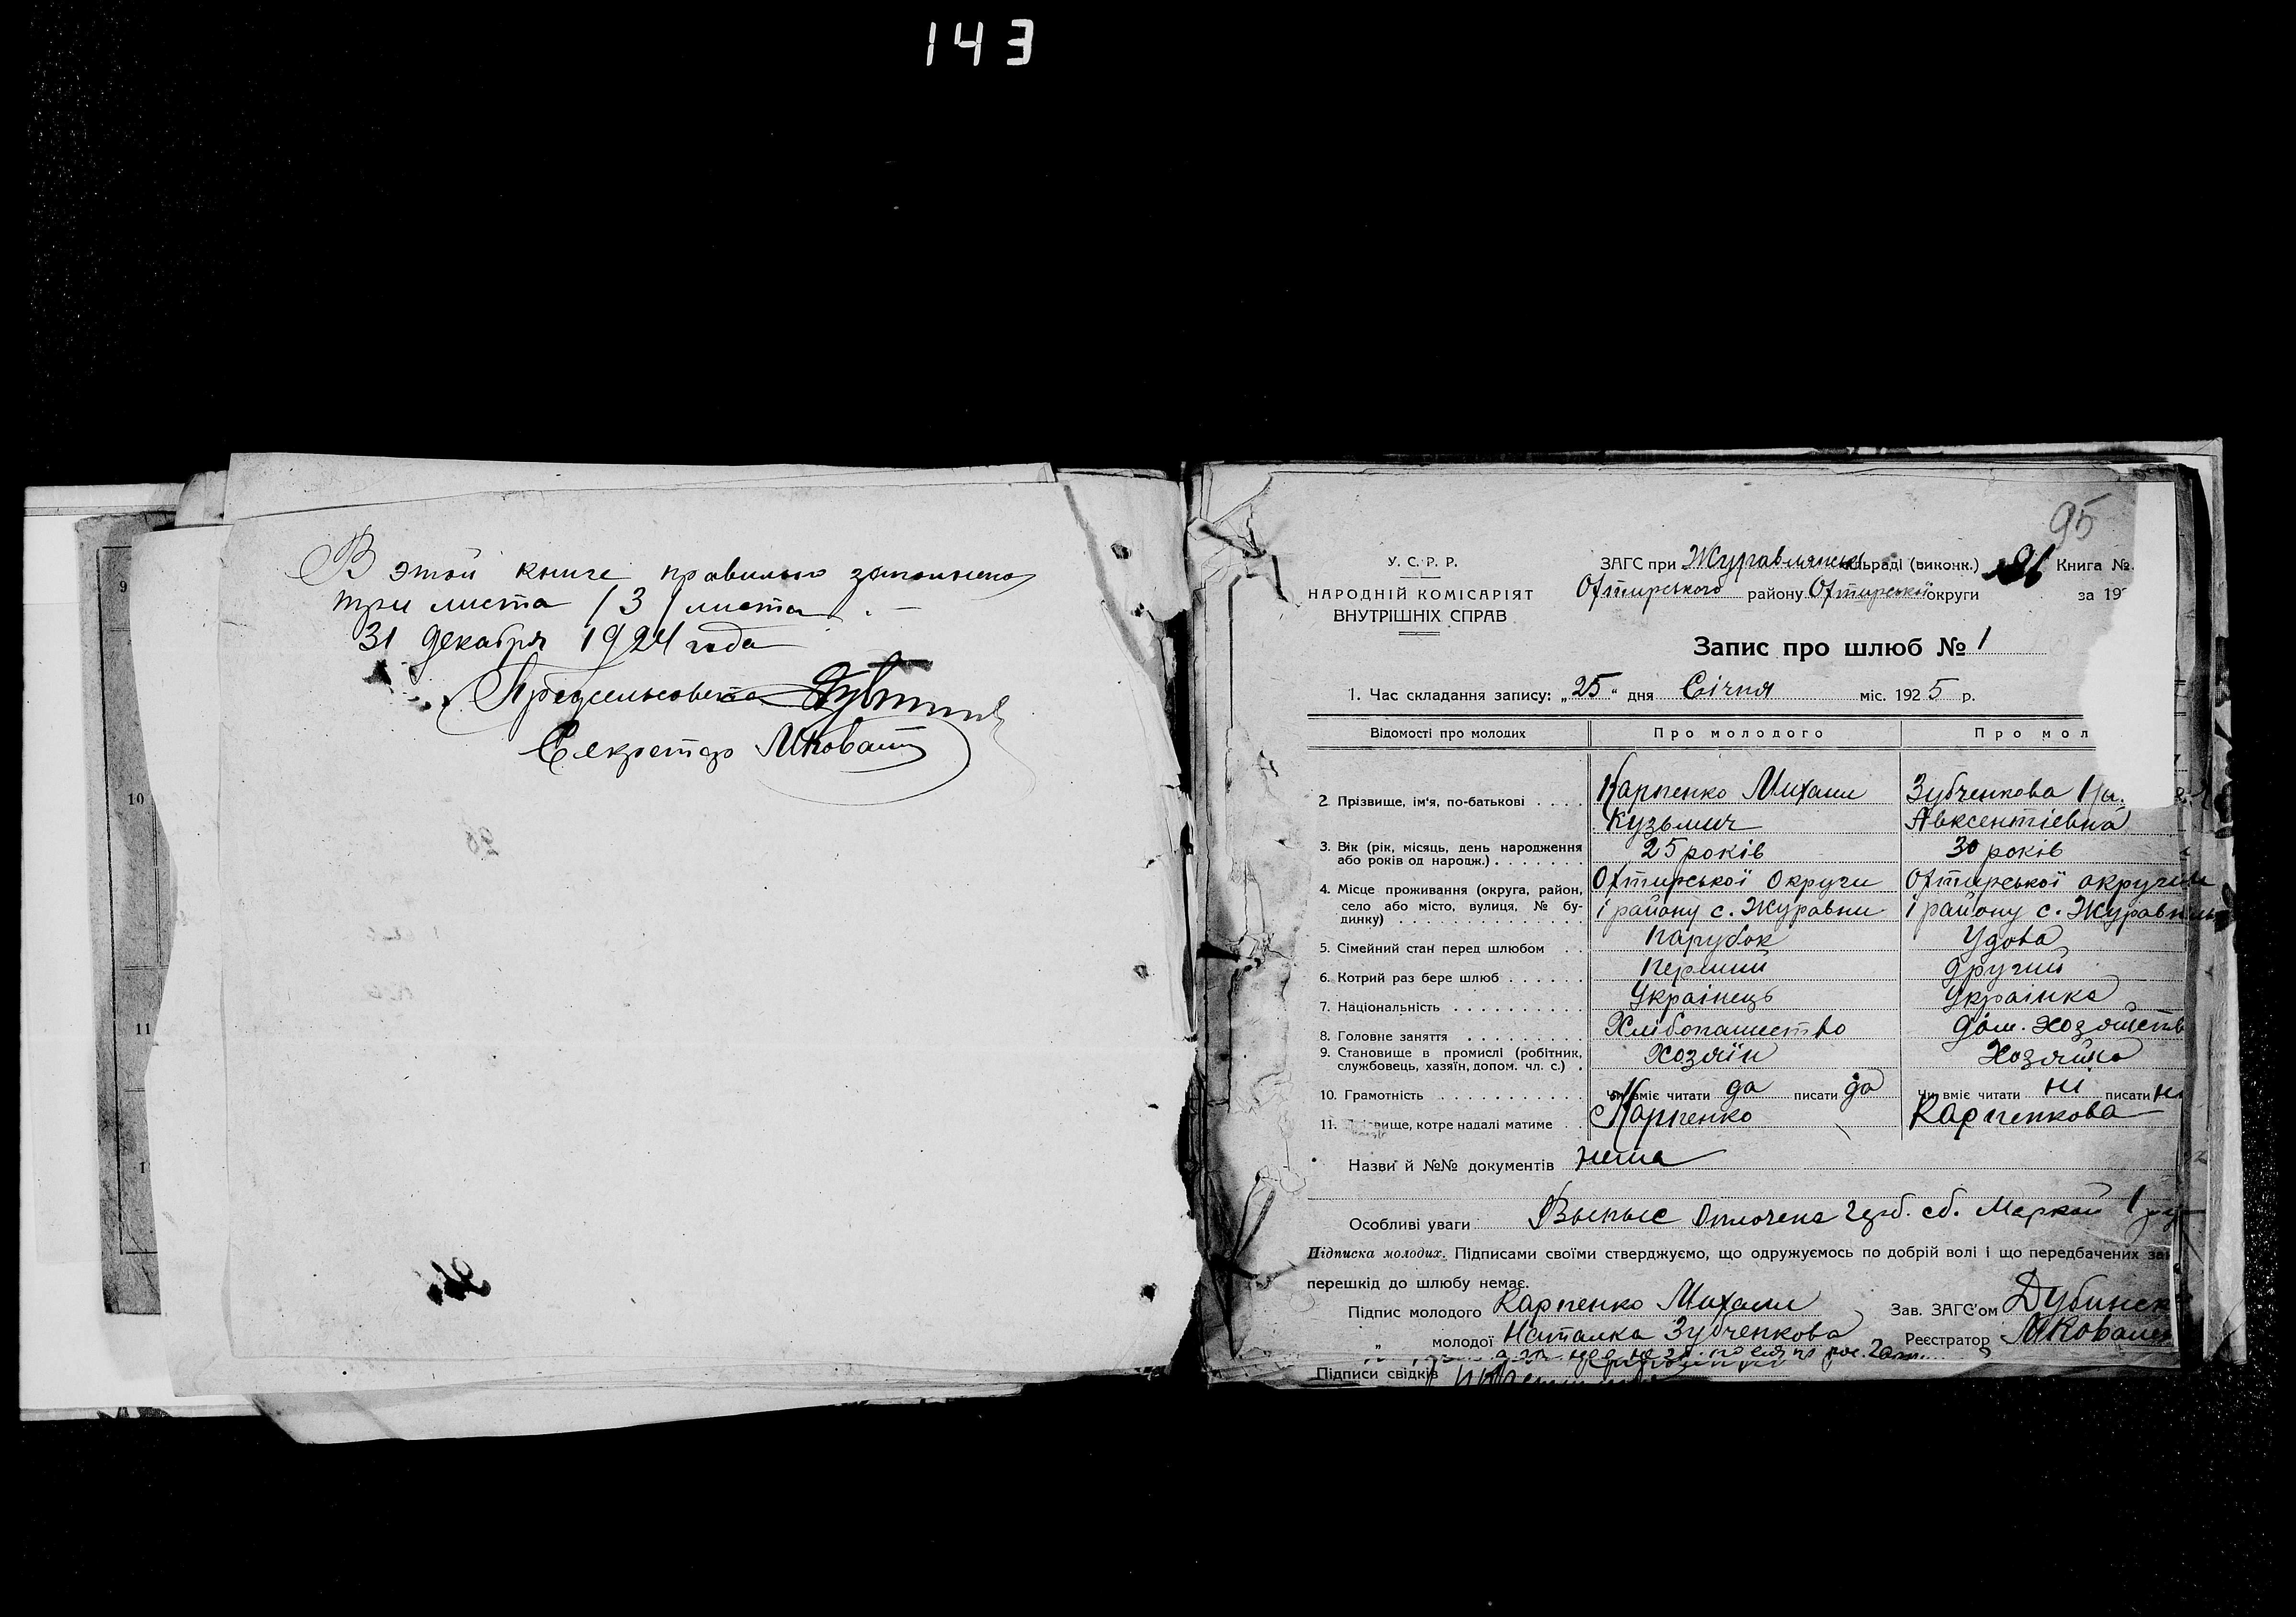 143
9
10
11
1
В этой книге правильно заполнено
три листа /3/ листа.
31 декабря 1924 года
Предсельсовета
Секретарь
95
У. С. Р. Р.
НАРОДНІЙ КОМІСАРІЯТ
ВНУТРІШНІХ СПРАВ
ЗАГС при Журавлянськ льраді (виконк.) Книга №
Охтирського району Охтирської округи за 19
Запис про шлюб № 1
1. Час складання запису: „25“ дня Січня міс. 1925 р.
Відомості про молодих Про молодого Про мол
2. Прізвище, ім'я, по-батькові . . . . Карпенко Михаил Зубченкова
Кузьмич Авксентіевна
3. Вік (рік, місяць, день народження
або років од народж.) . . . . . . . 25 років 30 років
4. Місце проживання (округа, район, Охтирської Округи Охтирської округи
село або місто, вулиця, № бу- і району с. Журавни і району с. Журавни
динку) . . . . . . . . . . . . . . .
5. Сімейний стан перед шлюбом . . Парубок Удова
6. Котрий раз бере шлюб . . . . . . Перший Другий
7. Національність . . . . . . . . . . Українець Українка
8. Головне заняття . . . . . . . . . Хлібопашество дом. хозяйств
9. Становище в промислі (робітник,
службовець, хазяїн, допом. чл. с.) . Хозяїн Хозяйка
10. Грамотність . . . . . . . . . . . Чи вміє читати да писати да Чи вміє читати ні писати н
11. вище, котре надалі матиме . . Карпенко Карпенкова
Назви й №№ документів нема
Особливі уваги Выпыс Оплочена герб. сб. Маркой 1
Підписка молодих. Підписами своїми стверджуємо, що одружуємось по добрій волі і що передбачених за
перешкід до шлюбу немає.
Підпис молодого Карпенко Михаил Зав. ЗАГС'ом Дубинск
„ молодої Наталка Зубченкова Реєстратор
Підписи свідків